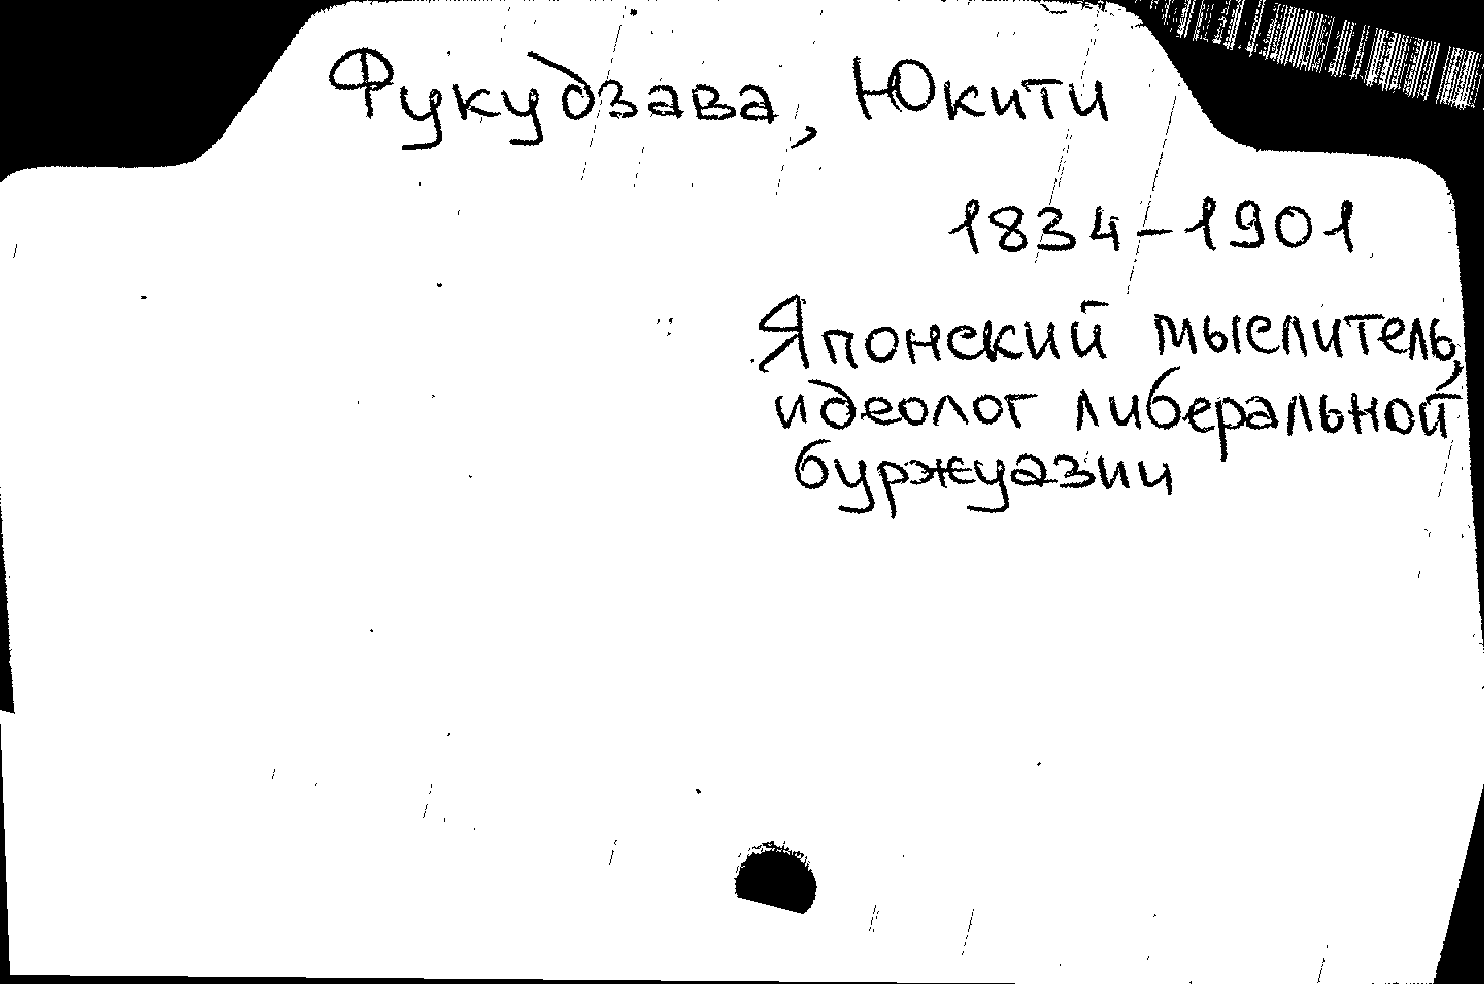 Фукудзава, Юкити
1834-1901
Японский мыслитель,
идеолог либеральной
буржуазии